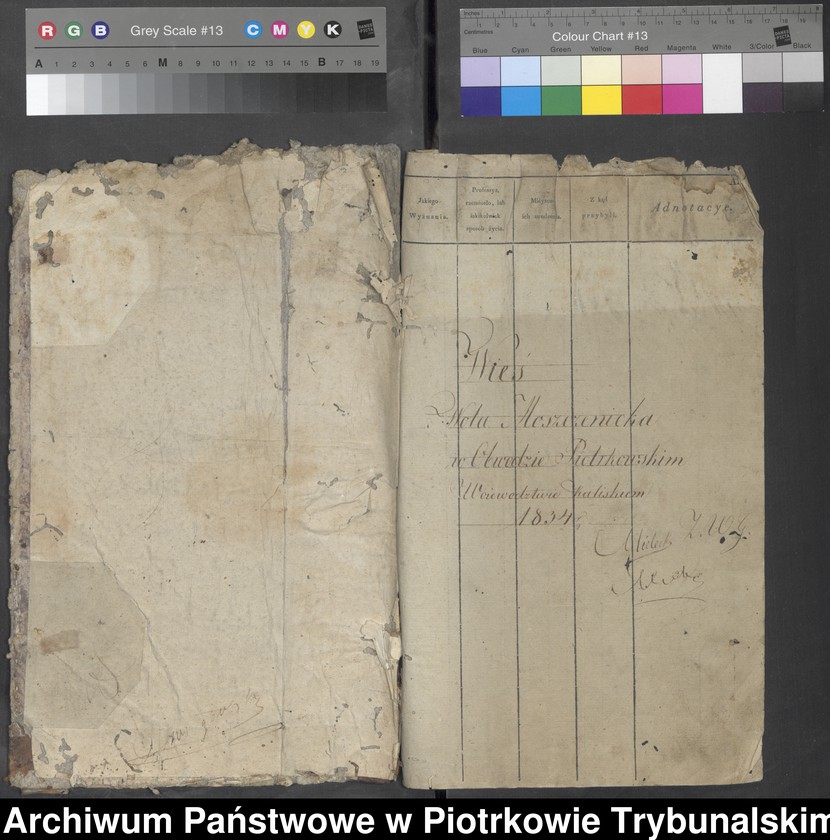 R G B Grey Scale #13 C M Y K
A 1 2 3 4 5 6 M 8 9 10 11 12 13 14 15 B 17 18 19
Inches 1 2 3 4 5 6 7 8
Centimetres 1 2 3 4 5 6 7 8 9 10 11 12 13 14 15 16 17 18 19
Colour Chart #13
Blue Cyan Green Yellow Red Magenta White 3/Color Black
Jakiego
Wyznania.
Professya,
rzemiosło, lub
jakikolwiek
sposób życia.
Miejsce
ich urodzenia.
Z kąd
przybyli.
Adnotacye.
Wieś
Wola Moszczenicka
w Obwodzie Piotrkowskim
Woiewodztwie Kaliskiem
1834
Archiwum Państwowe w Piotrkowie Trybunalskim